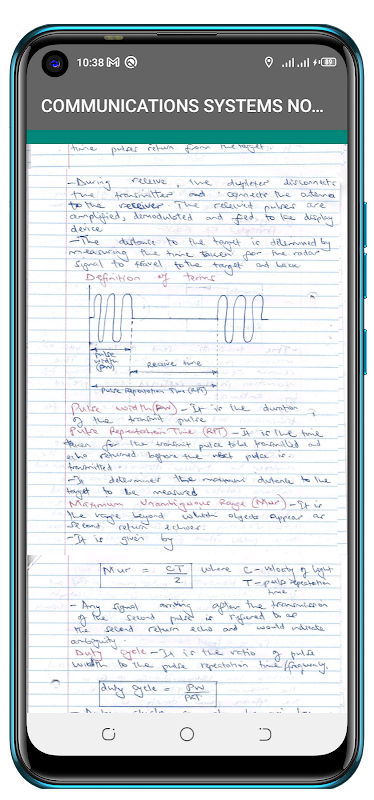 10:38
89
COMMUNICATIONS SYSTEMS NO...
time pulses return from the target.
-During receive, the duplexer disconnects
the transmitter and connects the antenna
to the receiver. The received pulses are
amplified, demodulated and fed to the display
device
-The distance to the target is determined by
measuring the time taken for the radar
signal to travel to the target and back
Definition of terms
pulse
width
(PW)
receive time
Pulse Repetation Time (PRT)
Pulse width (PW) - It is the duration
of the transmit pulse
Pulse Repetation Time (PRT) - It is the time
taken for the transmit pulse to be transmitted and
echo returned before the next pulse is
transmitted.
-It determines the maximum distance to the
target to be measured
Maximum Unambiguous Range (Mur) - It is
the range beyond which objects appear as
second return echoes.
-It is given by
Mur = CT/2 where C - velocity of light
T - pulse repetation
time.
- Any signal arriving after the transmission
of the second pulse is refered to as
the second return echo and would indicate
ambiguity.
Duty cycle - It is the ratio of pulse
width to the pulse repetation time/frequency.
duty cycle = PW/PRT